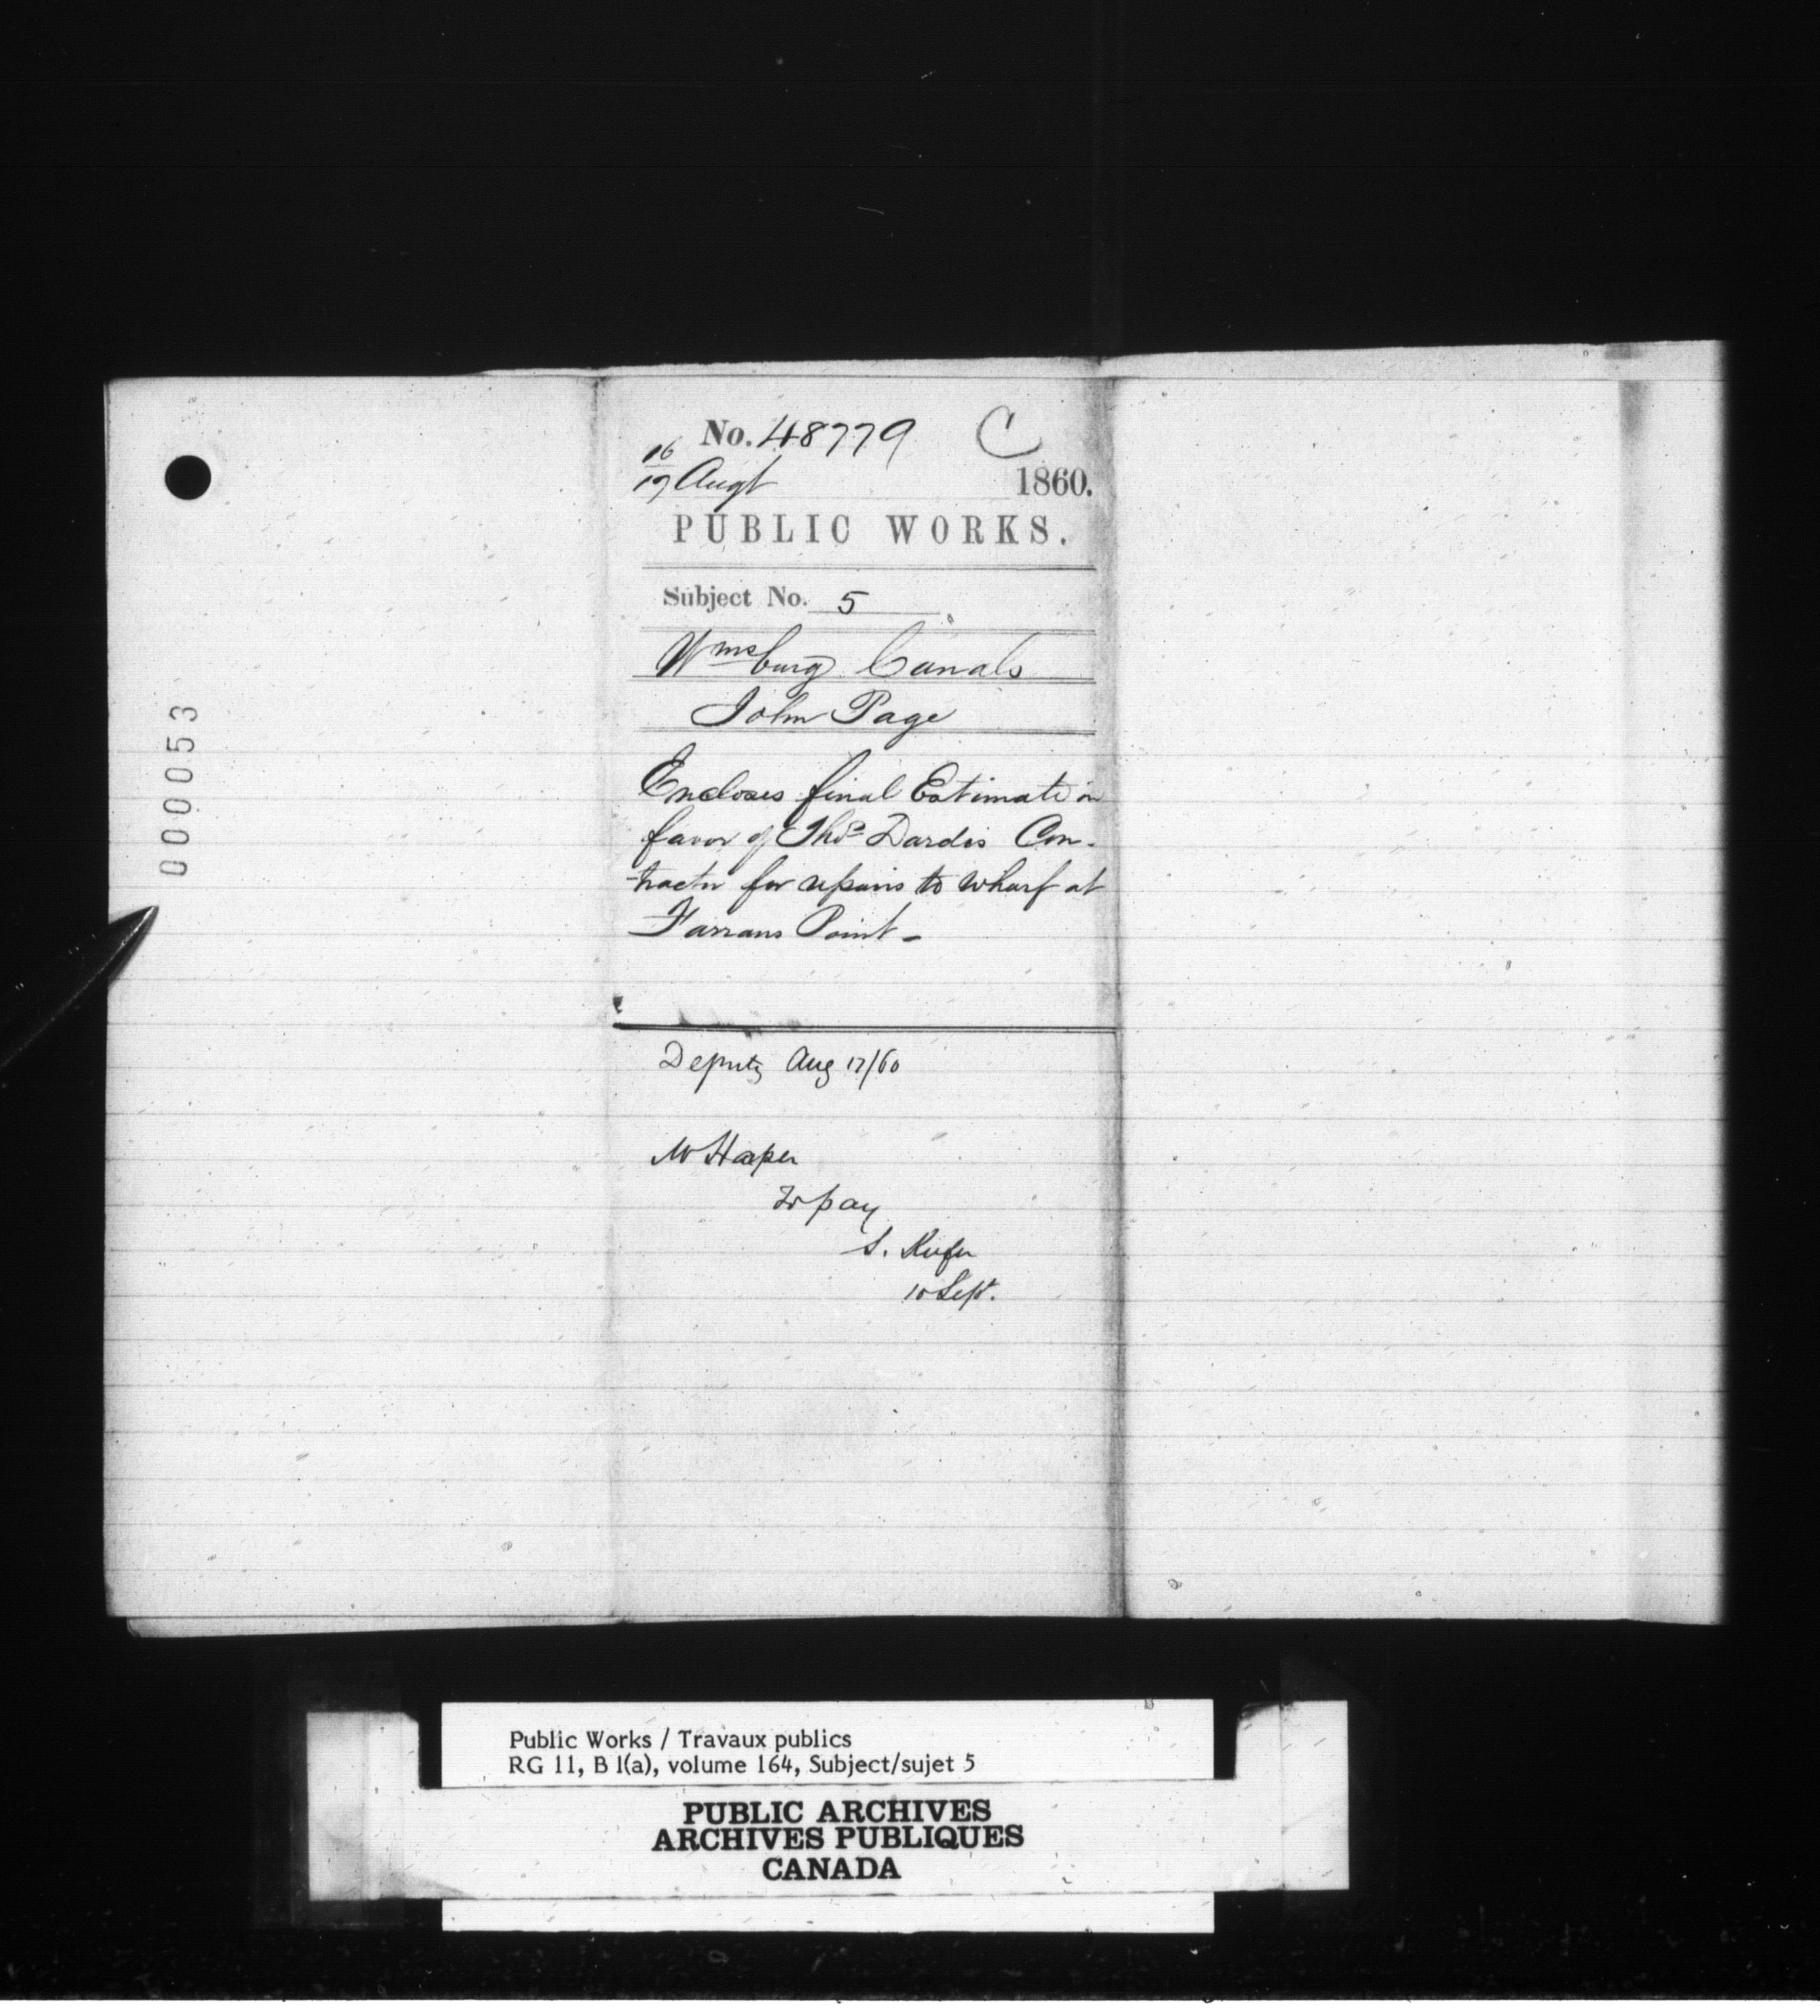 No. 48779 C
16
17 Augt 1860.
PUBLIC WORKS.
Subject No. 5
Wmsburg Canals
John Page
Encloses final Estimate in
favor of Thos Dardis Con-
-tractor for repairs to Wharf at
Farrans Point -
Deputy Aug 17/60
Mr Harper
To pay
S. Keefer
10 Sept.
000053
Public Works / Travaux publics
RG 11, B 1(a), volume 164, Subject/sujet 5
PUBLIC ARCHIVES
ARCHIVES PUBLIQUES
CANADA